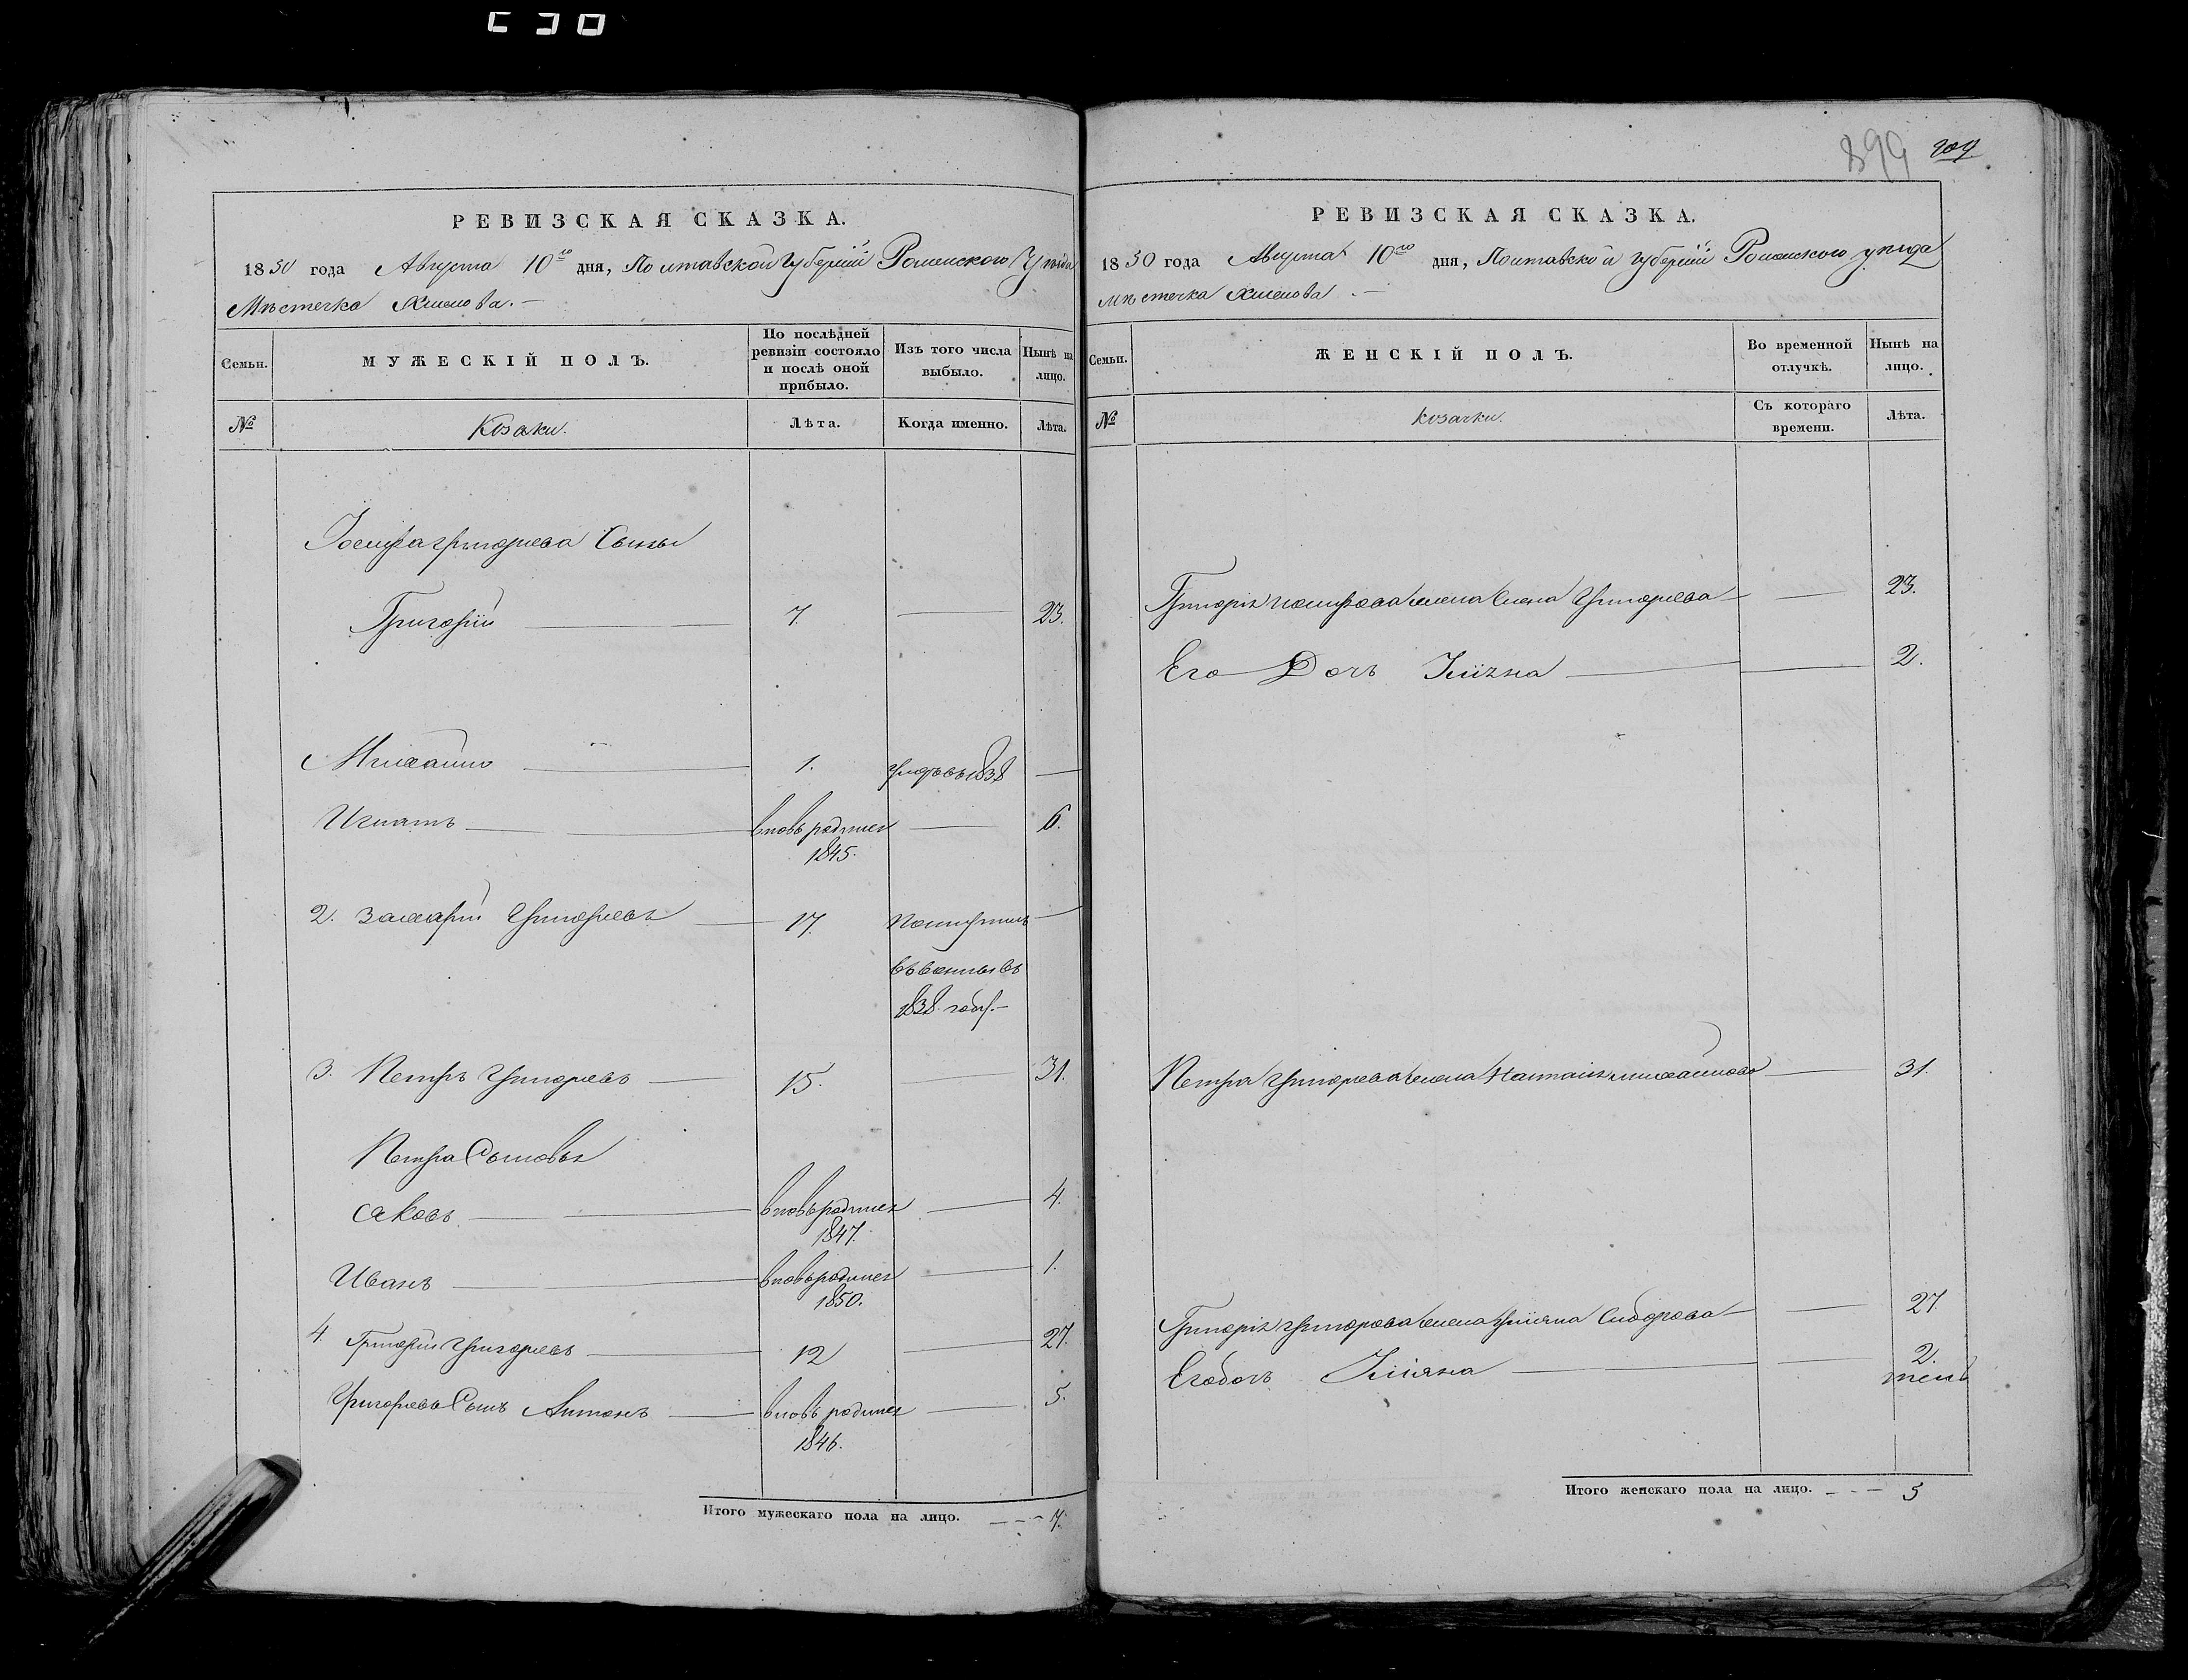 899 209
РЕВИЗСКАЯ СКАЗКА.
1850 года Августа 10го дня, Полтавской Губерніи Роменского Уѣзда
Мѣстечка Хмелова.
Семьи.
МУЖЕСКІЙ ПОЛЪ.
По послѣдней ревизіи состояло и послѣ оной прибыло.
Изъ того числа выбыло.
Нынѣ на лицо.
№
Козаки.
Лѣта.
Когда именно.
Лѣта.
Іосифа Григорьева Сыны
Григорій 7. 23.
Михайло 1. умръ въ 1838
Игнатъ вновь родился 6.
1845.
2. Захарій Григорьевъ 17.
1838 году.
3. Петръ Григорьевъ 15. 31.
Петра Сыновья
Яковъ вновь родился 4.
1847.
Иванъ вновь родился 1.
1850.
4 Григорій Григорьевъ 12 27.
Григорьевъ Сынъ Антонъ вновь родился 5.
1846.
Итого мужескаго пола на лицо. 7.
РЕВИЗСКАЯ СКАЗКА.
1850 года Августа 10го дня, Полтавской Губерніи Роменского уѣзда
Мѣстечка Хмелова
Семьи.
ЖЕНСКІЙ ПОЛЪ.
Во временной отлучкѣ.
Нынѣ на лицо.
№
козачки.
Съ котораго времени.
Лѣта.
Григорія Иосифова жена Елена Григорьева 23.
Его Дочь 2.
Петра Григорьева жена Наталія Михайлова 31.
Григорія Григорьева жена Уліяна Сидорова 27
Его дочь 2.
Итого женскаго пола на лицо. 5